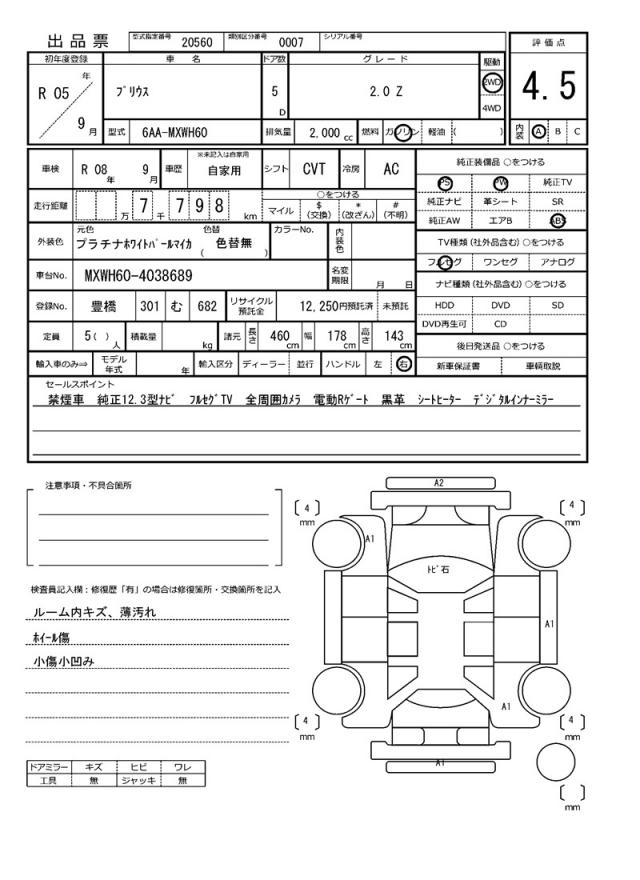 出品票 型式指定番号 20560 類別区分番号 0007 シリアル番号
初年度登録 車名 ドア数 グレード 駆動 評価点
R 05 年 9 月 プリウス 5 D 2.0 Z 2WD 4WD 4.5
型式 6AA-MXWH60 排気量 2,000 cc 燃料 ガソリン 軽油 ( ) 内装 A B C
車検 R 08 年 9 月 車歴 ※未記入は自家用 自家用 シフト CVT 冷房 AC
走行距離 万 7 千 7 9 8 km ○をつける
マイル $ (交換) * (改ざん) # (不明)
外装色 元色 プラチナホワイトパールマイカ 色替 ( 色替無 ) カラーNo. 内装色
車台No. MXWH60-4038689 名変期限 月 日
登録No. 豊橋 301 む 682 リサイクル預託金 12,250円預託済 未預託
定員 5( ) 人 積載量 kg 諸元 長さ 460 cm 幅 178 cm 高さ 143 cm
輸入車のみ⇒ モデル年式 年 輸入区分 ディーラー 並行 ハンドル 左 右
純正装備品 ○をつける
PS PW 純正TV
純正ナビ 革シート SR
純正AW エアB ABS
TV種類 (社外品含む) ○をつける
フルセグ ワンセグ アナログ
ナビ種類 (社外品含む) ○をつける
HDD DVD SD
DVD再生可 CD
後日発送品 ○をつける
新車保証書 車輌取説
セールスポイント
禁煙車 純正12.3型ナビ フルセグTV 全周囲カメラ 電動Rゲート 黒革 シートヒーター デジタルインナーミラー
注意事項・不具合箇所
検査員記入欄：修復歴「有」の場合は修復箇所・交換箇所を記入
ルーム内キズ、薄汚れ
ホイール傷
小傷小凹み
ドアミラー キズ ヒビ ワレ
工具 無 ジャッキ 無
A2
[ 4 ] mm
[ 4 ] mm
A1
トビ石
A1
A1
[ 4 ] mm
[ 4 ] mm
A1
[ ] mm